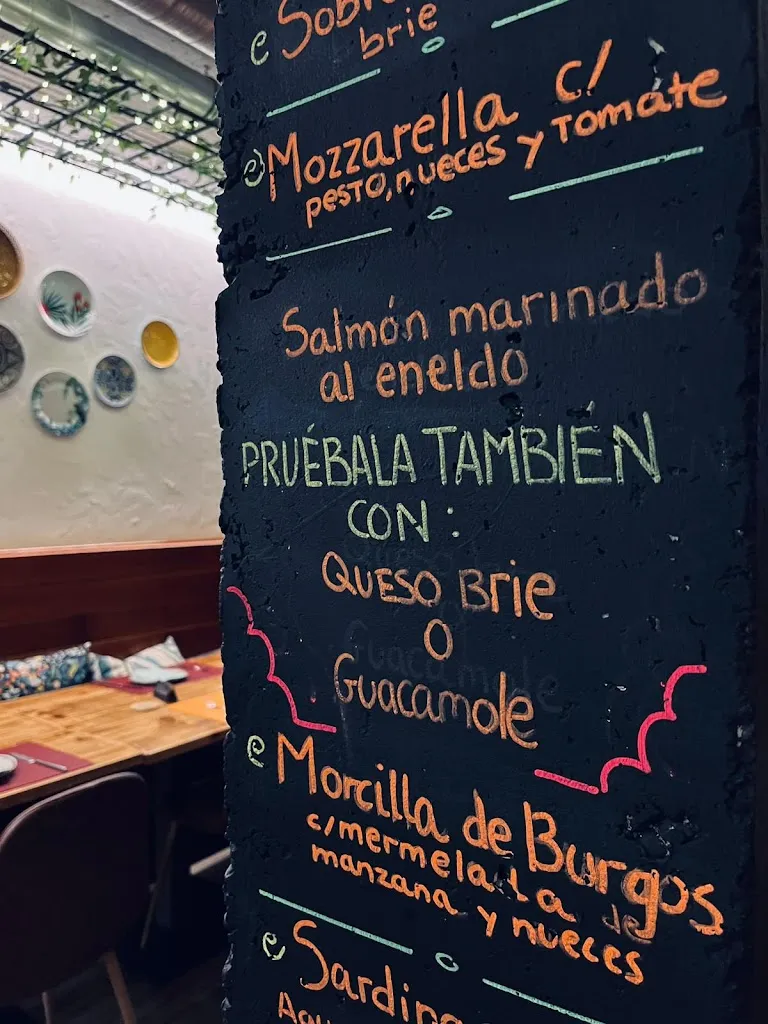 e Sobr
brie
e Mozzarella c/
pesto, nueces y tomate
Salmón marinado
al eneldo
PRUÉBALA TAMBIÉN
CON:
QUESO Brie
O
Guacamole
e Morcilla de Burgos
c/mermelada de
manzana y nueces
e Sardina